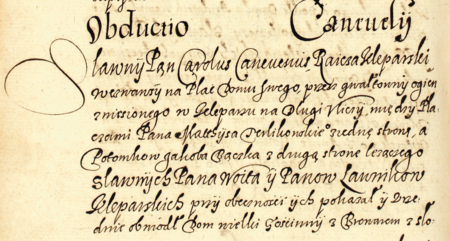 Obductio Canevesÿ
Sławny Pan Carolus Canevenus Raicza Kleparski
wezwawszy na Plac Domu swego, przez gwałtowny ogien
zniesionego w Kleparzu na Długi Vlicÿ, mię dzÿ Pla
czami Pana Matthÿsa Terlikowskie z iednę stronę, a
Potomkow Jakoba Baczka z drugą stronę lezącego
Sławnÿch Pana Woita ÿ Panow Ławnikow
Kleparskich przÿ obecnosci ÿch pokazał ÿ Rze
dnie obwiodł Dom wielki Goscinnÿ z Browarem z Sło